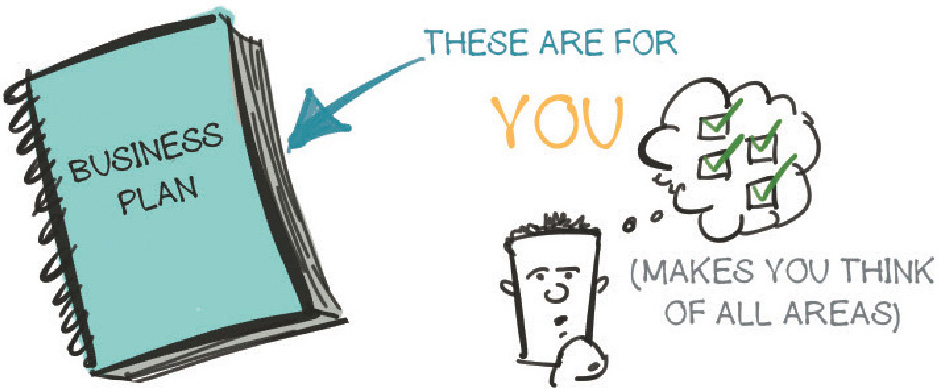 BUSINESS
PLAN
THESE ARE FOR
YOU
(MAKES YOU THINK
OF ALL AREAS)